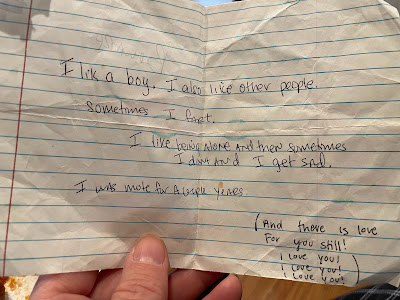 I lik a boy. I also like other people.
Sometimes I fart.
I like being alone and then sometimes
I dont and I get sad.
I was mote for a couple years
(And there is love
For you still!
I love you!
I love you!
I love you!)